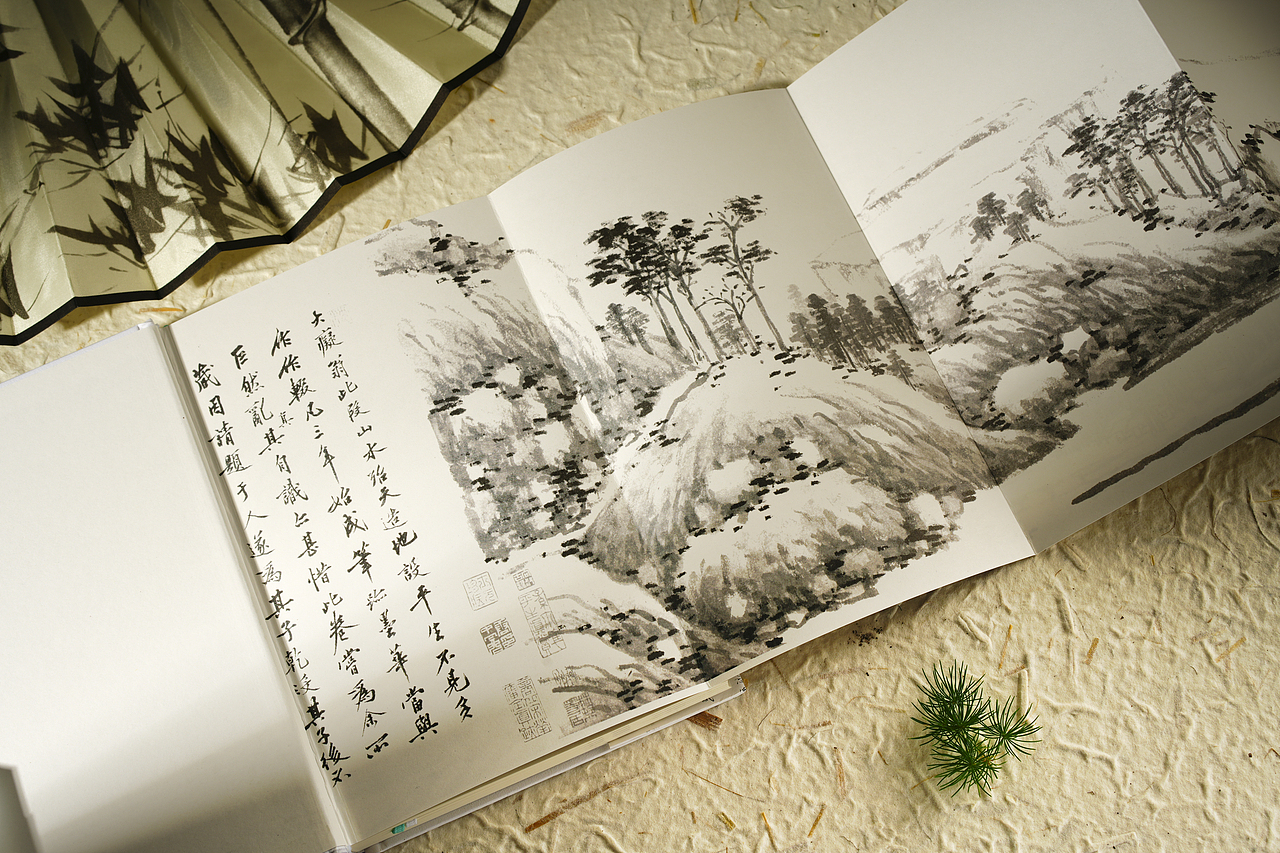 大癡翁此段山水殆天造地設平生不見多
作作輟凡三年始成筆跡墨華當與
巨然亂真其自識亦甚惜此卷當為余所
藏因請題于人遂為其子乾沒其子後不